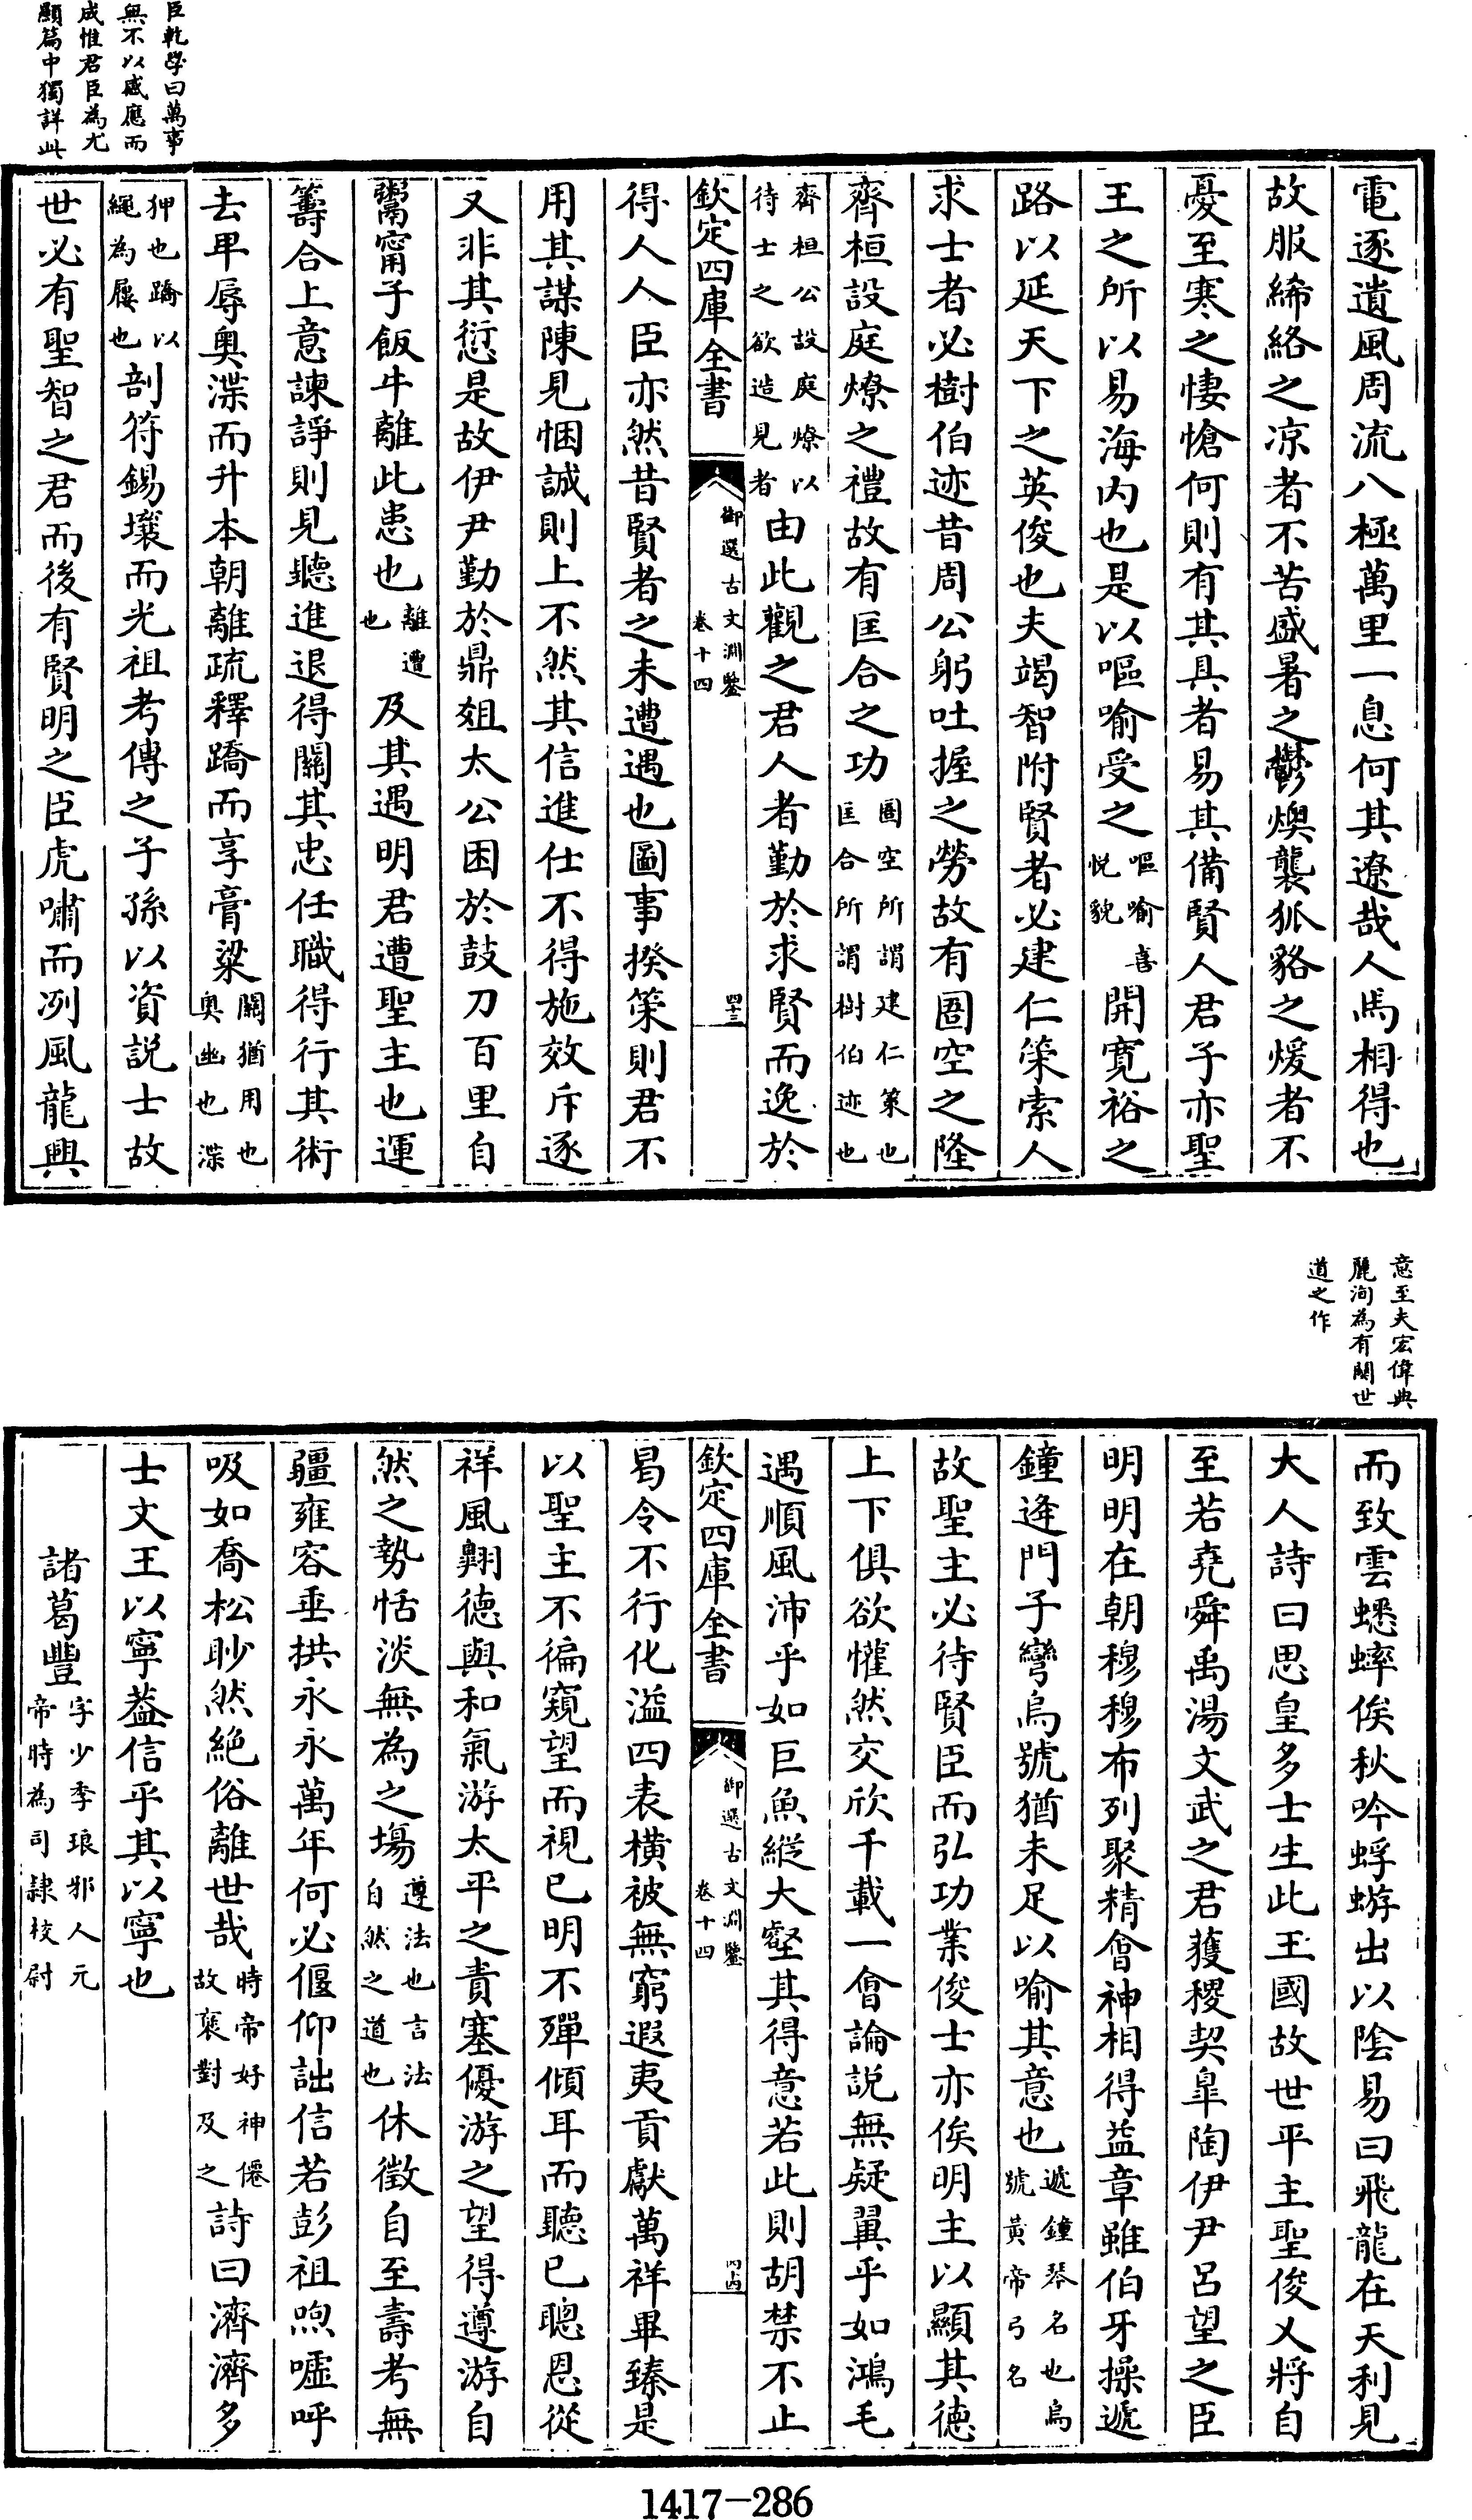 臣乾學曰萬事
無不以感應而
成惟君臣為尤
顯篇中獨詳此
電逐遺風周流八極萬里一息何其遼哉人馬相得也
故服絺綌之凉者不苦盛暑之鬱燠襲狐貉之煖者不
憂至寒之悽愴何則有其具者易其備賢人君子亦聖
王之所以易海内也是以嘔喻受之嘔喻喜悦貌開寛裕之
路以延天下之英俊也夫竭智附賢者必建仁策索人
求士者必樹伯迹昔周公躬吐握之勞故有圄空之隆
齊桓設庭燎之禮故有匡合之功圄空所謂建仁策也匡合所謂樹伯迹也
齊桓公設庭燎以待士之欲造見者由此觀之君人者勤於求賢而逸於
欽定四庫全書 御選古文淵鑒卷十四 四十三
得人人臣亦然昔賢者之未遭遇也圖事揆策則君不
用其謀陳見悃誠則上不然其信進仕不得施效斥逐
又非其愆是故伊尹勤於鼎俎太公困於鼓刀百里自
鬻甯子飯牛離此患也離遭也及其遇明君遭聖主也運
籌合上意諫諍則見聽進退得關其忠任職得行其術
去卑辱奥渫而升本朝離疏釋蹻而享膏粱關猶用也奥幽也渫
狎也蹻以繩為屨也剖符錫壤而光祖考傳之子孫以資説士故
世必有聖智之君而後有賢明之臣虎嘯而冽風龍興
意至夫宏偉典
麗洵為有關世
道之作
而致雲蟋蟀俟秋吟蜉蝣出以陰易曰飛龍在天利見
大人詩曰思皇多士生此王國故世平主聖俊乂將自
至若堯舜禹湯文武之君獲稷契皐陶伊尹呂望之臣
明明在朝穆穆布列聚精會神相得益章雖伯牙操遞
鐘逄門子彎烏號猶未足以喻其意也遞鐘琴名也烏號黄帝弓名
故聖主必待賢臣而弘功業俊士亦俟明主以顯其德
上下俱欲懽然交欣千載一會論説無疑翼乎如鴻毛
遇順風沛乎如巨魚縱大壑其得意若此則胡禁不止
欽定四庫全書 御選古文淵鑒卷十四 四十四
曷令不行化溢四表橫被無窮遐夷貢獻萬祥畢臻是
以聖主不徧窺望而視已明不殫傾耳而聽已聰恩從
祥風翺德與和氣游太平之責塞優游之望得遵游自
然之勢恬淡無為之塲遵法也言法自然之道也休徵自至壽考無
疆雍容垂拱永永萬年何必偃仰詘信若彭祖呴嘘呼
吸如喬松眇然絶俗離世哉時帝好神僊故襃對及之詩曰濟濟多
士文王以寧葢信乎其以寧也
諸葛豐字少季琅邪人元帝時為司隸校尉
1417-286